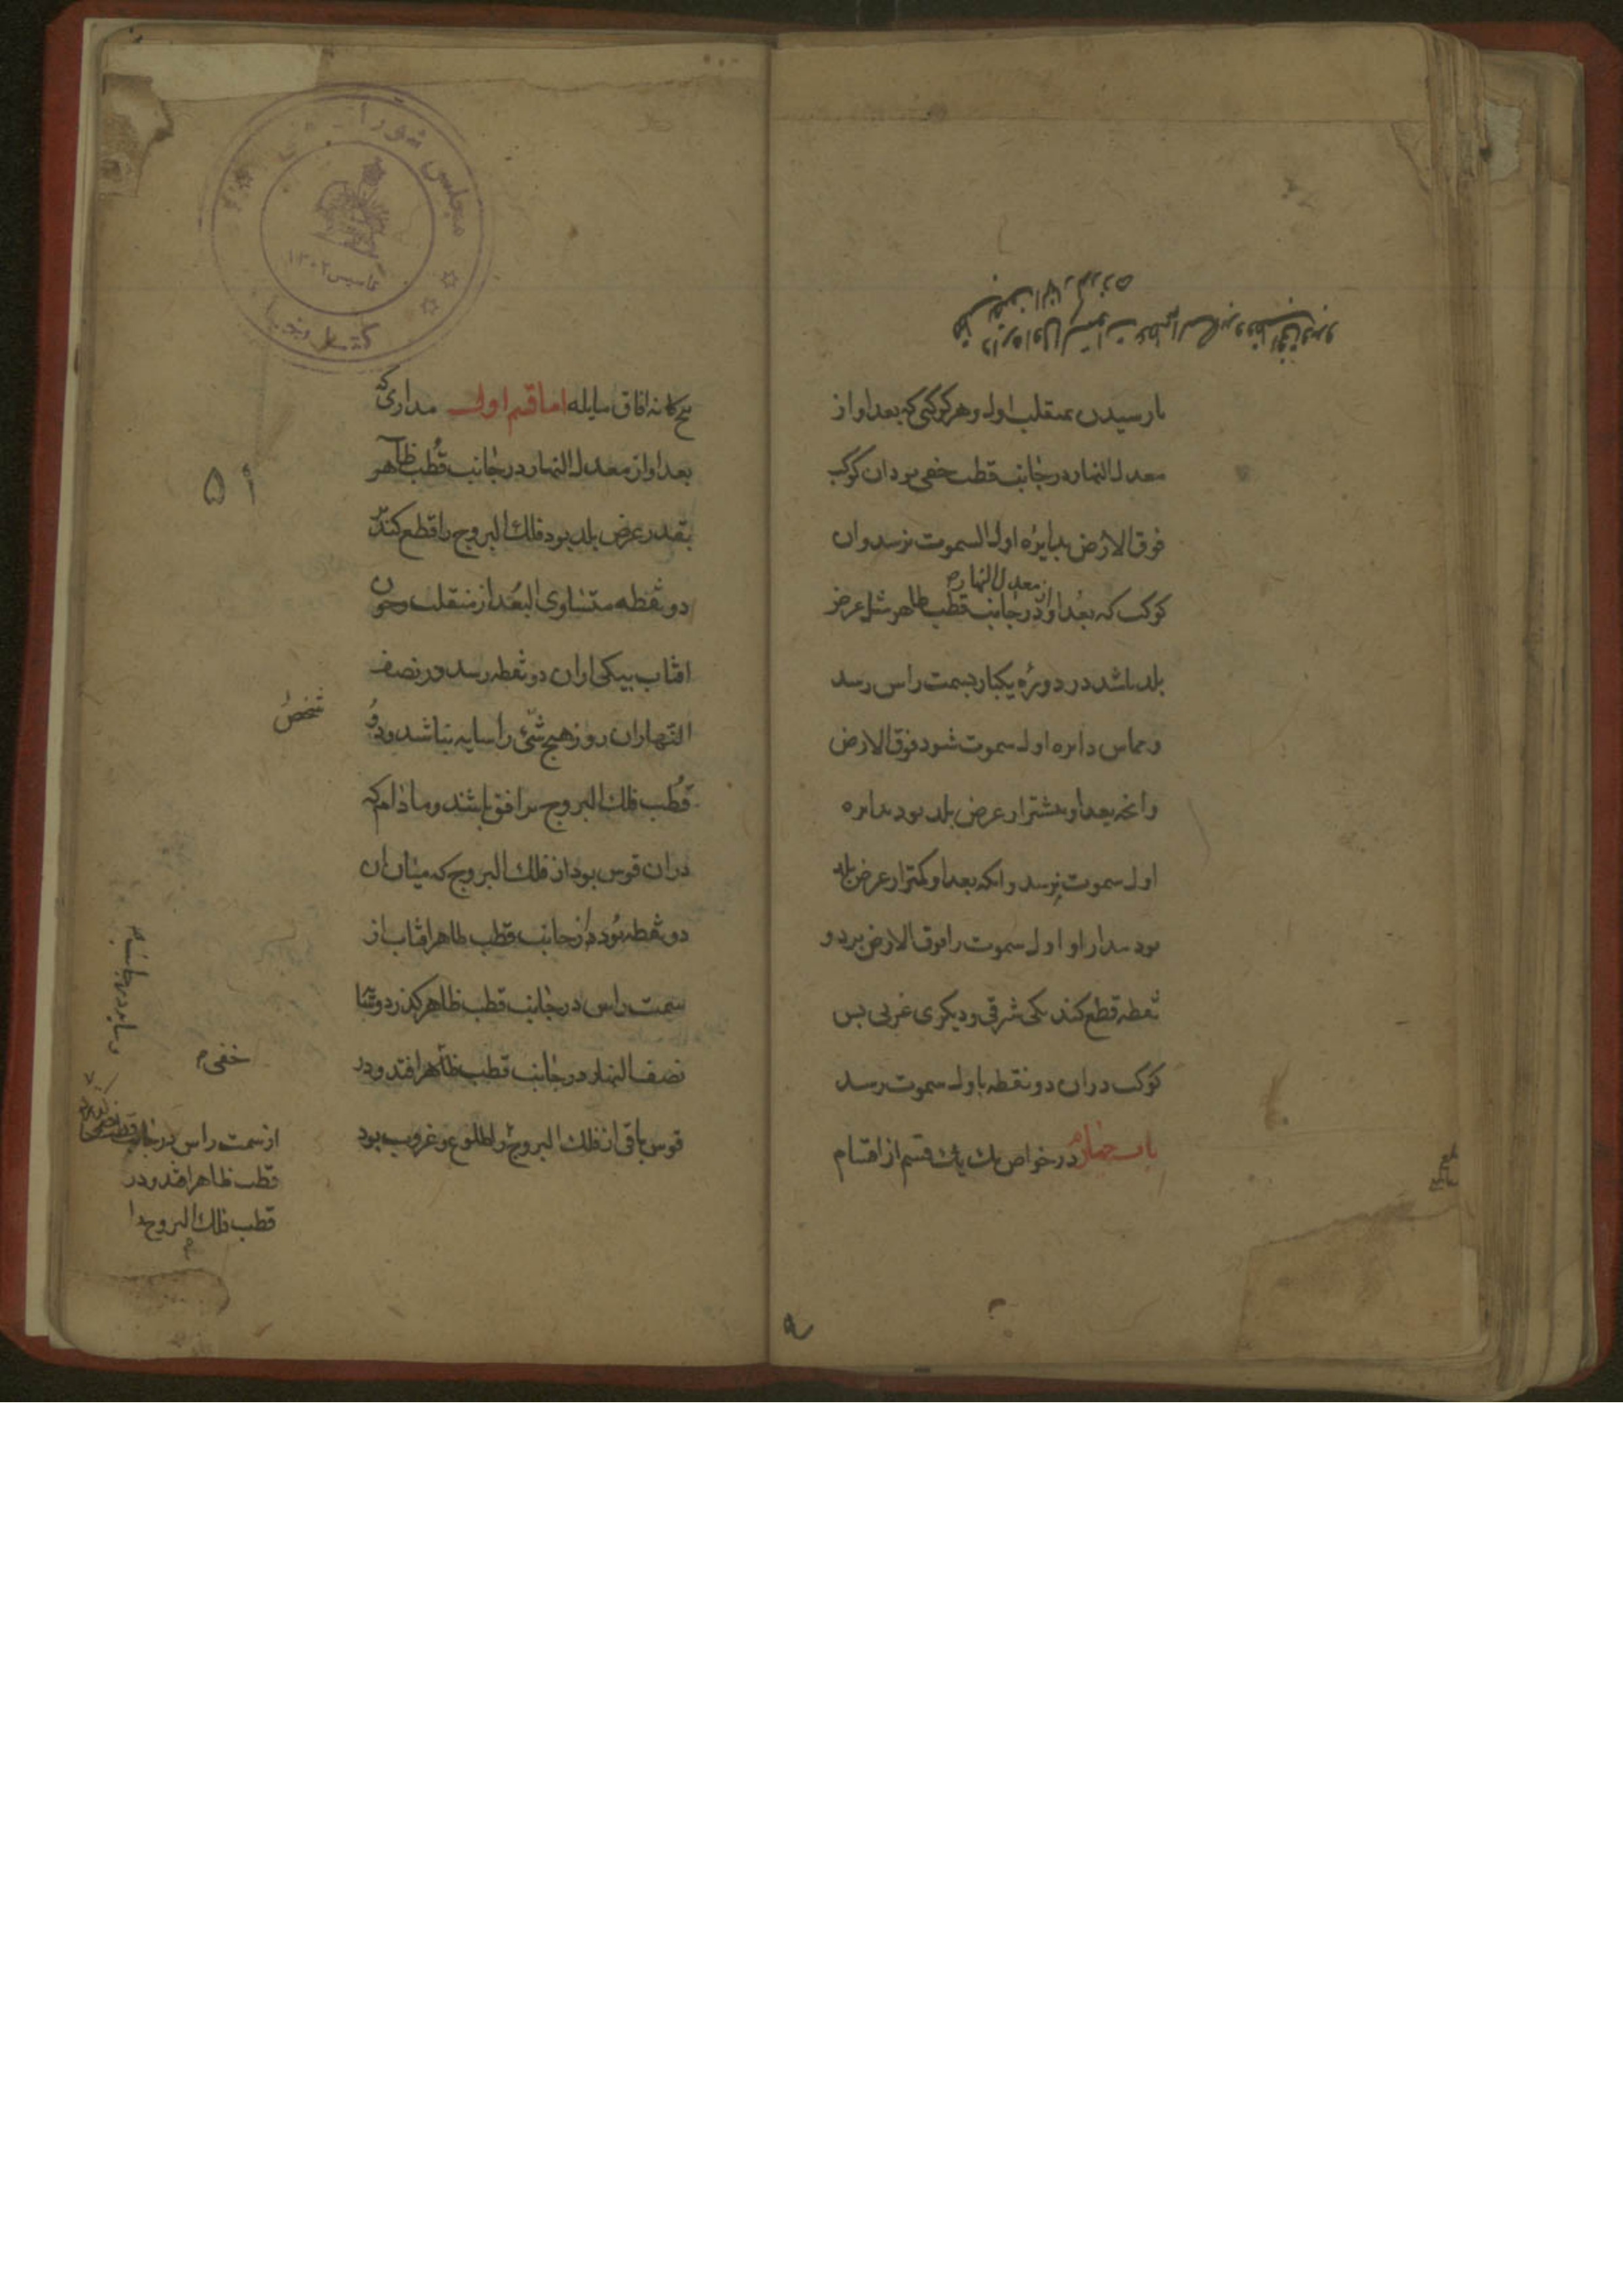 تا رسیدن بمنقلب اول و هر کوکبی که بعد او از
معدل النهار در جانب قطب خفی بود ان کوکب
فوق الارض بدایرۀ اول السموت نرسد و ان
از معدل النهار
کوکب که بعد او در جانب قطب ظاهر مثل عرض
بلد باشد در دورۀ یکبار بسمت راس رسد
و مماس دایره اول سموت شود فوق الارض
و انچه بعد او بیشتر از عرض بلد بود بدایره
اول سموت نرسد و انکه بعد او کمتر از عرض بلد
بود مدار او اول سموت را فوق الارض بر دو
نقطه قطع کند یکی شرقی و دیگری غربی پس
کوکب در ان دو نقطه باول سموت رسد
باب چهارم در خواص یک یک قسم از اقسام
پنج کانه افاق مایله اما قسم اول مداری که
بعد او از معدل النهار در جانب قطب ظاهر
بقدر عرض بلد بود فلک البروج را قطع کند بر
دو نقطه متساوی البعد از منقلب و چون
افتاب بیکی از ان دو نقطه رسد در نصف
النهار ان روز هیچ شئ را سایه نباشد و دو
قطب فلک البروج بر افق باشند و مادام که
در ان قوس بود از فلک البروج که میان ان
دو نقطه بود در جانب قطب ظاهر افتاب از
سمت راس در جانب قطب ظاهر کذرد و
نصف النهار در جانب قطب ظاهر افتد و در
قوس باقی از فلک البروج را طلوع و غروب بود
۵۱
شخص
خفی
و سایه در جانب
از سمت راس در جانب قطب خفی
قطب ظاهر افتد و در
قطب فلک البروج را
مجلس شورا
تاسیس ۱۳۰۲
کتابخانه